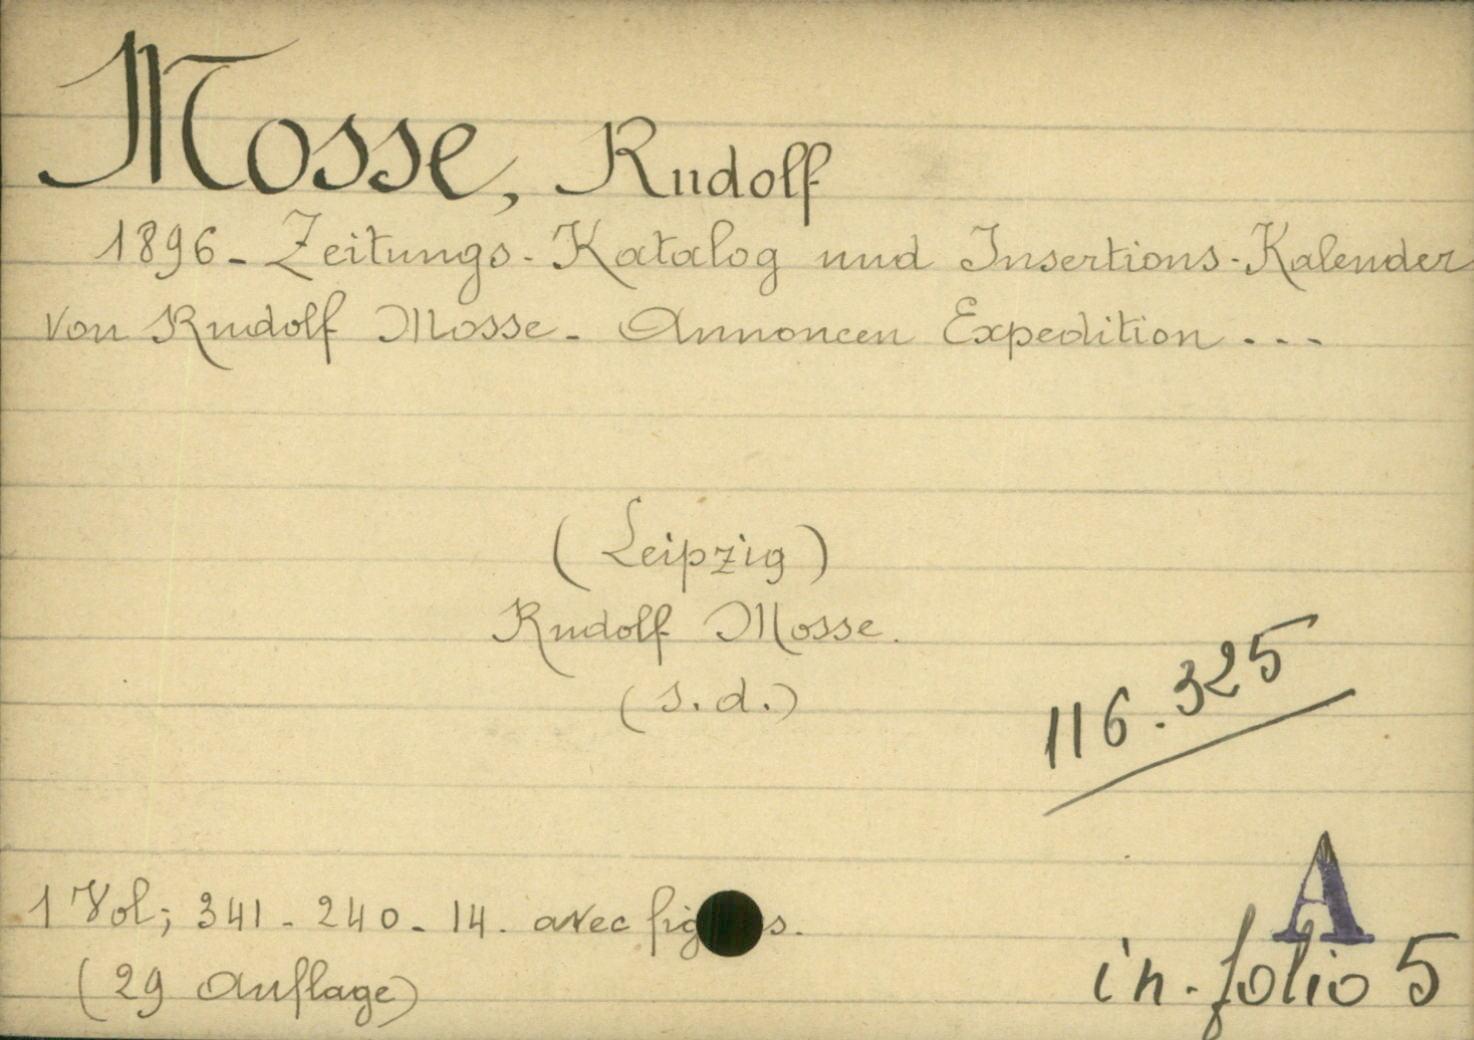 Mosse, Rudolf
1896 - Zeitungs-Katalog und Insertions-Kalender
von Rudolf Mosse - Annoncen Expedition ...
(Leipzig)
Rudolf Mosse.
(s.d.)
116.325
1 Vol; 341 - 240 - 14. avec
(29 Auflage)
A
in-folio 5